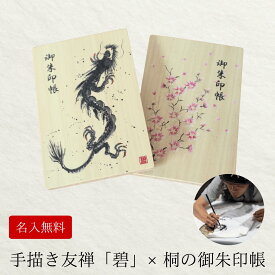 御朱印帳
御朱印帳
名入無料
手描き友禅「碧」× 桐の御朱印帳